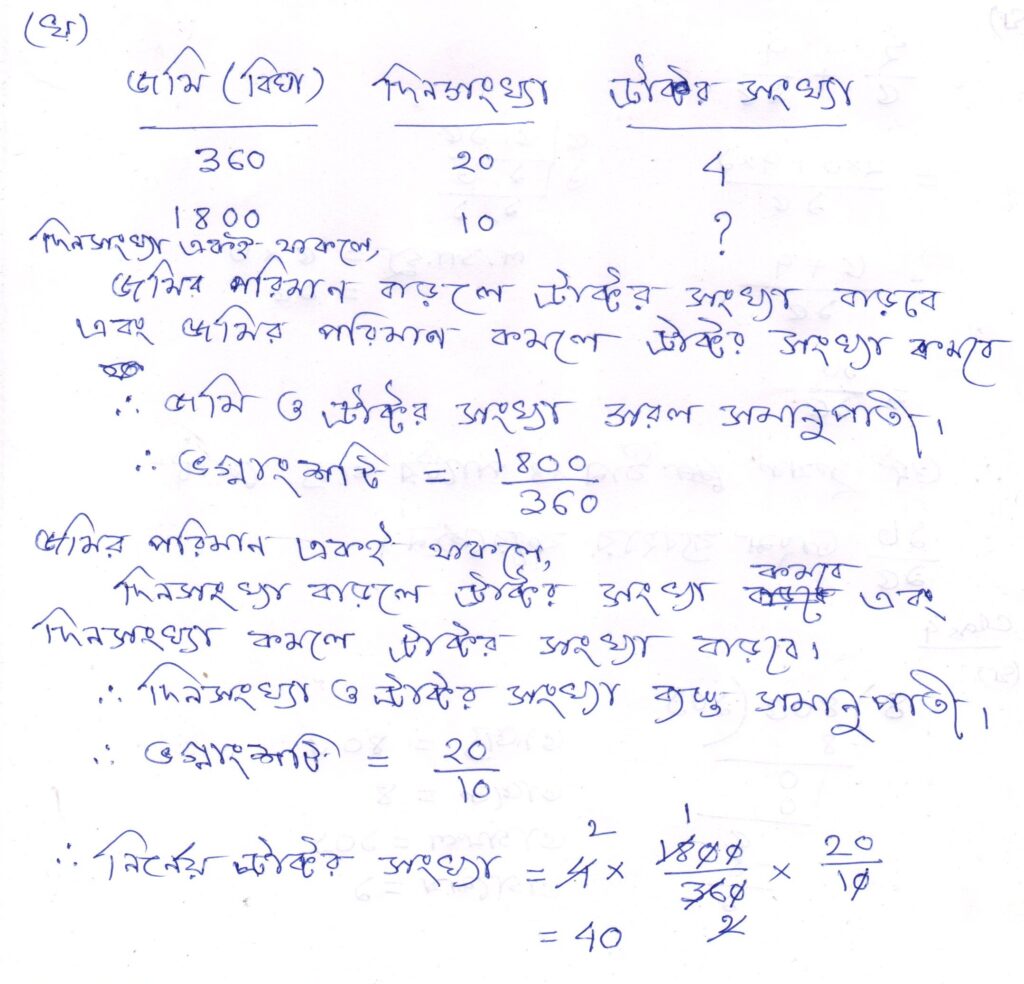 (খ)
জমি (বিঘা) দিনসংখ্যা ট্রাক্টর সংখ্যা
360 20 4
1800 10 ?
দিনসংখ্যা একই থাকলে,
জমির পরিমান বাড়লে ট্রাক্টর সংখ্যা বাড়বে
এবং জমির পরিমান কমলে ট্রাক্টর সংখ্যা কমবে
∴ জমি ও ট্রাক্টর সংখ্যা সরল সমানুপাতী।
∴ ভগ্নাংশটি = 1800/360
জমির পরিমান একই থাকলে,
দিনসংখ্যা বাড়লে ট্রাক্টর সংখ্যা কমবে এবং
দিনসংখ্যা কমলে ট্রাক্টর সংখ্যা বাড়বে।
∴ দিনসংখ্যা ও ট্রাক্টর সংখ্যা ব্যস্ত সমানুপাতী।
∴ ভগ্নাংশটি = 20/10
∴ নির্নেয় ট্রাক্টর সংখ্যা = 4 × 1800/360 × 20/10
= 40